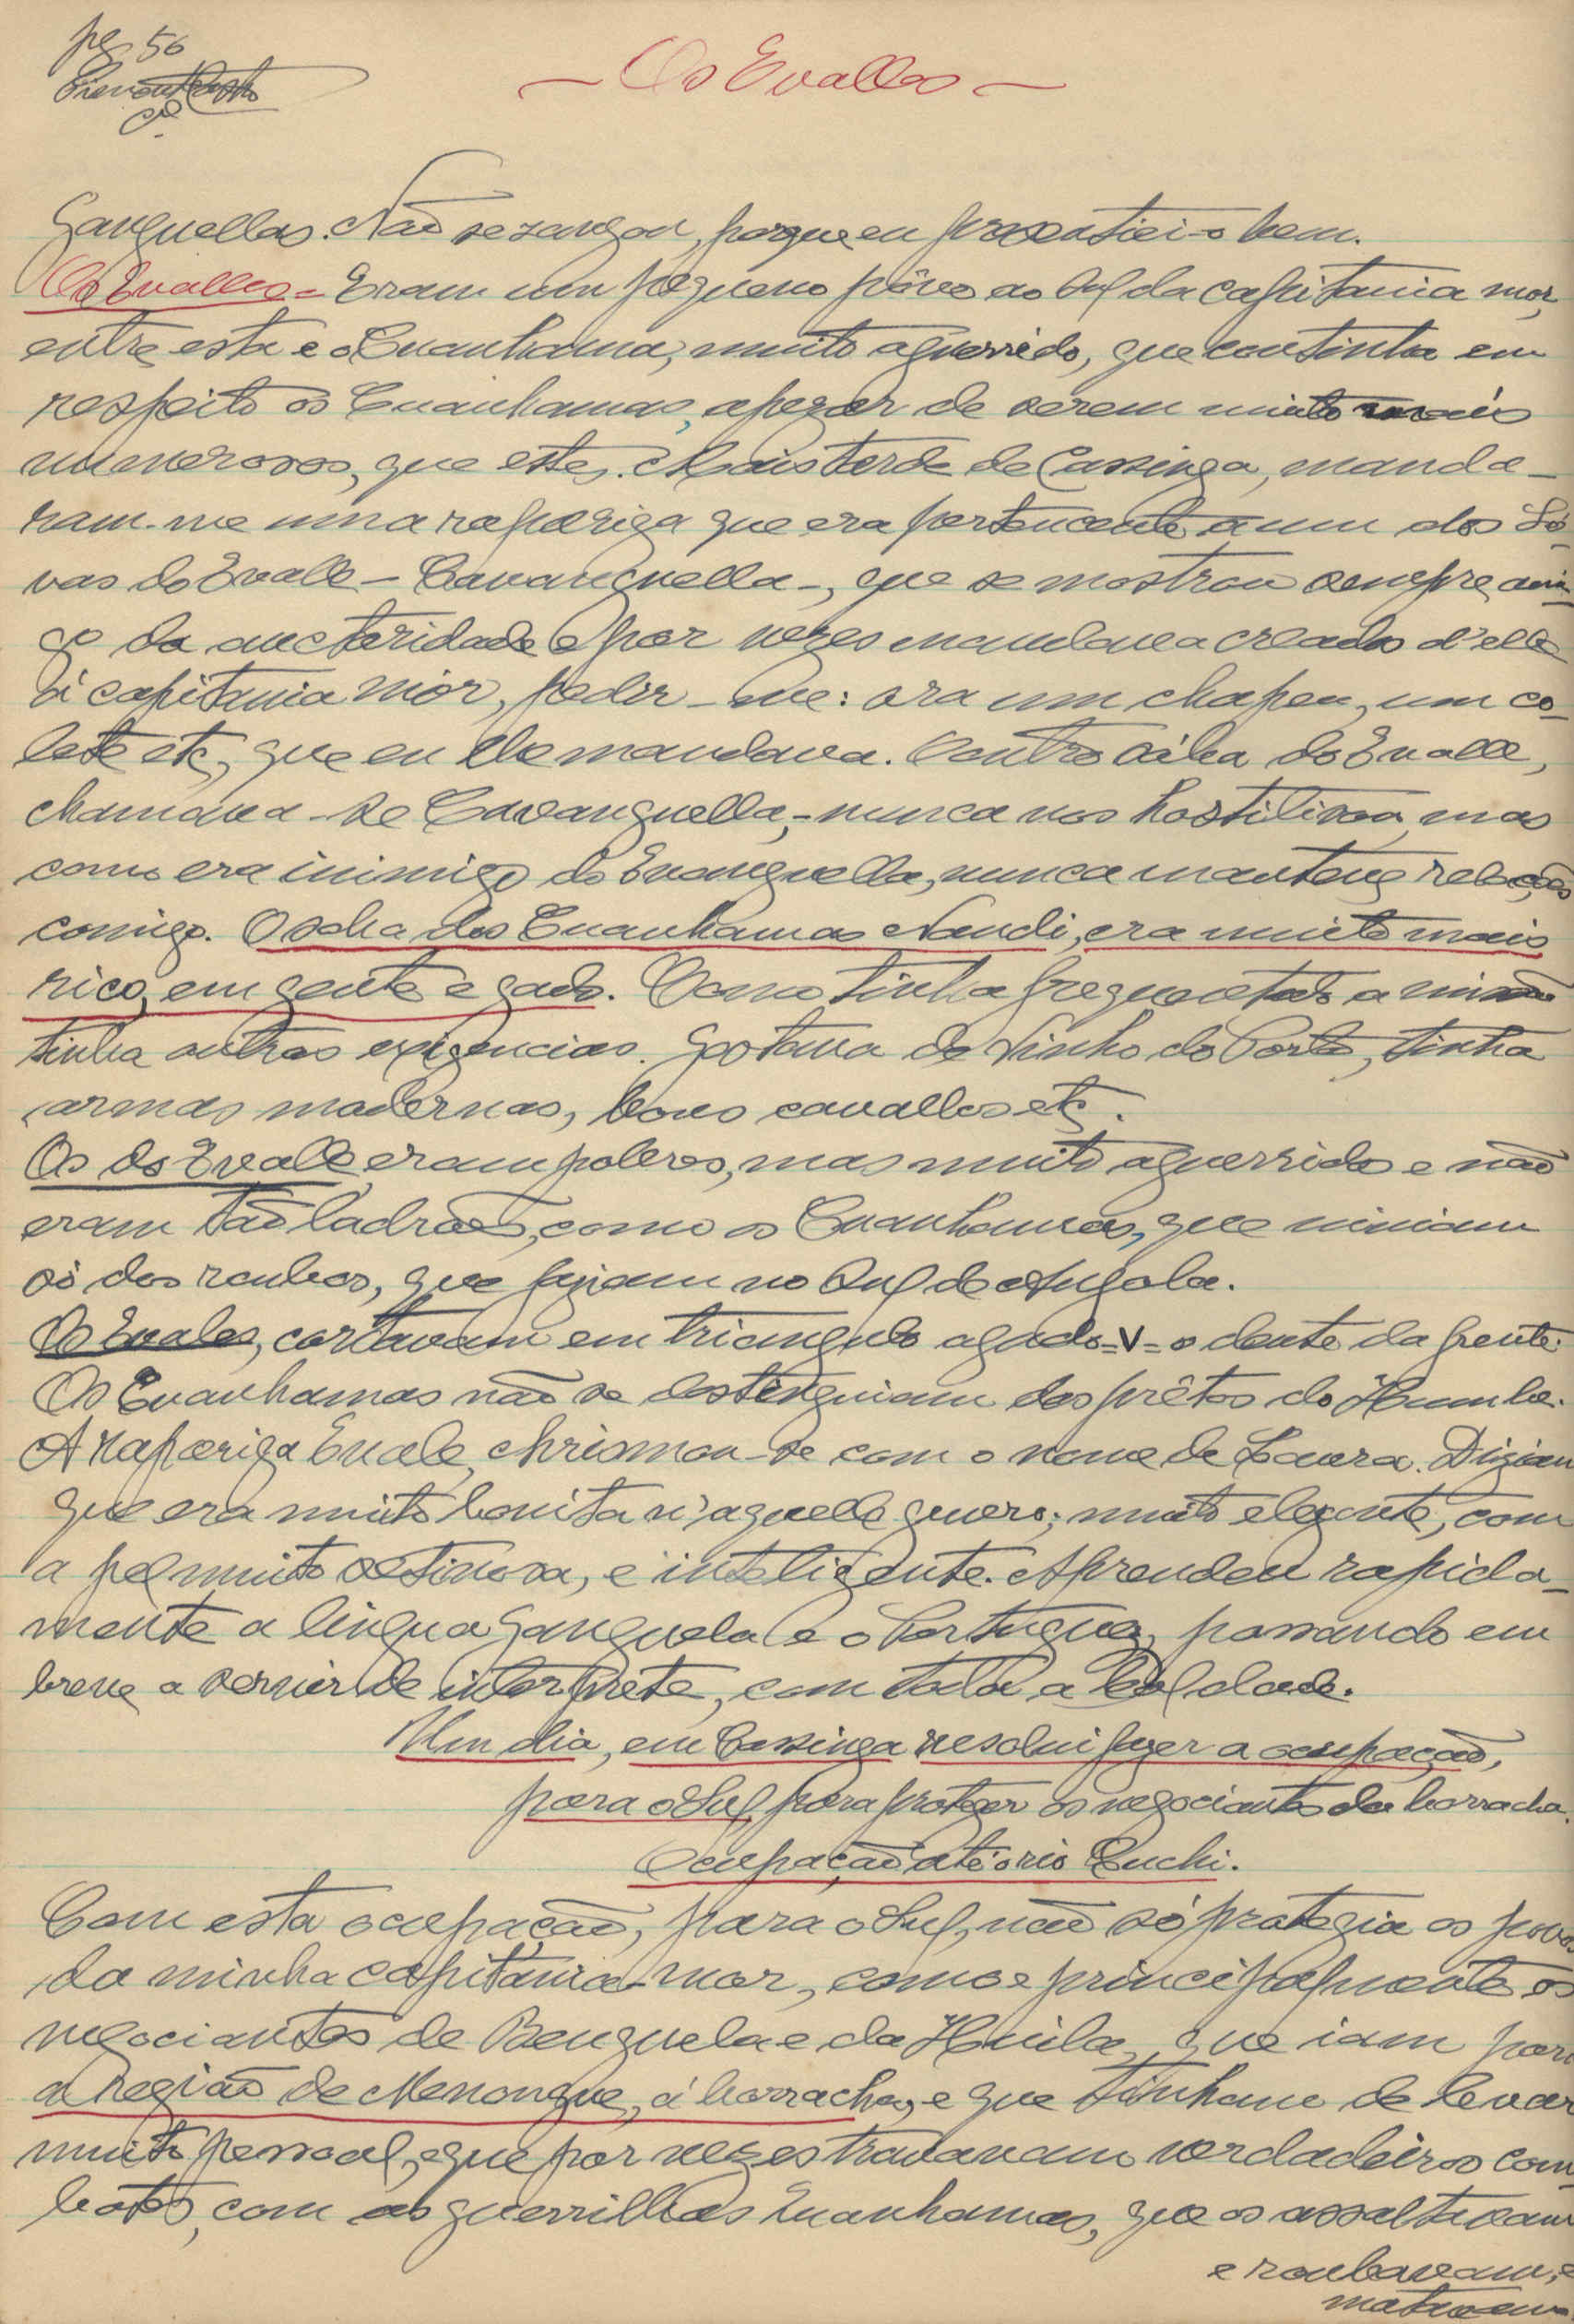 pg 56
— Os Evalles —
Ganguellas. Não se zangou, porque eu presentiei-o bem.
Os Evalles = Eram um pequeno pôvo ao Sul da capitania mor,
entre esta e o Cuanhama, muito aguerrido, que continha em
respeito os Cuanhamas, apezar de serem muito mais
numerosos, que estes. Mais tarde de Cassinga, manda-
ram-me uma rapariga que era pertencente a um dos So-
vas do Evalle - Cavanguella -, que se mostrou sempre ami-
go da auctoridade e por vezes mandava creados d'elle
á capitania mór, pedir-me: ora um chapeu, um co-
lete etc, que eu lhe mandava. O outro sóba do Evalle,
chamava-se Cavanguella, - nunca nos hostilisou, mas
como era inimigo do Evanguella, nunca manteve relações
comigo. O soba dos Cuanhamas Nandi, era muito mais
rico, em gente e gado. Como tinha frequentado a missão
tinha outras exigencias. Gostava de Vinho do Porto, tinha
armas modernas, bons cavallos etc.
Os do Evalle eram pobres, mas muito aguerridos e não
eram tão ladrões, como os Cuanhamas, que viviam
só dos roubos, que faziam no Sul de Angola.
Os Evales, cortavam em triangulo agudo = V = o dente da frente.
Os Cuanhamas não se destinguiam dos prêtos do Humbe.
A rapariga Evale, chrismou-se com o nome de Laura. Diziam
que era muito bonita n'aquelle genero; muito elegante, com
a pel muito setinosa, e inteligente. Aprendeu rapida-
mente a lingua Ganguela e o Portuguez, passando em
breve a servir de interprete, com toda a lealdade.
Um dia, em Cassinga resolvi fazer a ocupação,
para o Sul, para proteger os negociantes da borracha.
Ocupação até o rio Cuchi.
Com esta ocupação, para o Sul, não só protegia os povos
da minha capitania-mor, como e principalmente os
negociantes de Benguela e da Huila, que iam para
a região de Menongue, á borracha, e que tinham de levar
muito pessoal, e que por vezes travavam verdadeiros com-
bates, com as guerrilhas Cuanhamas, que os assaltavam
e roubavam, e
matavam